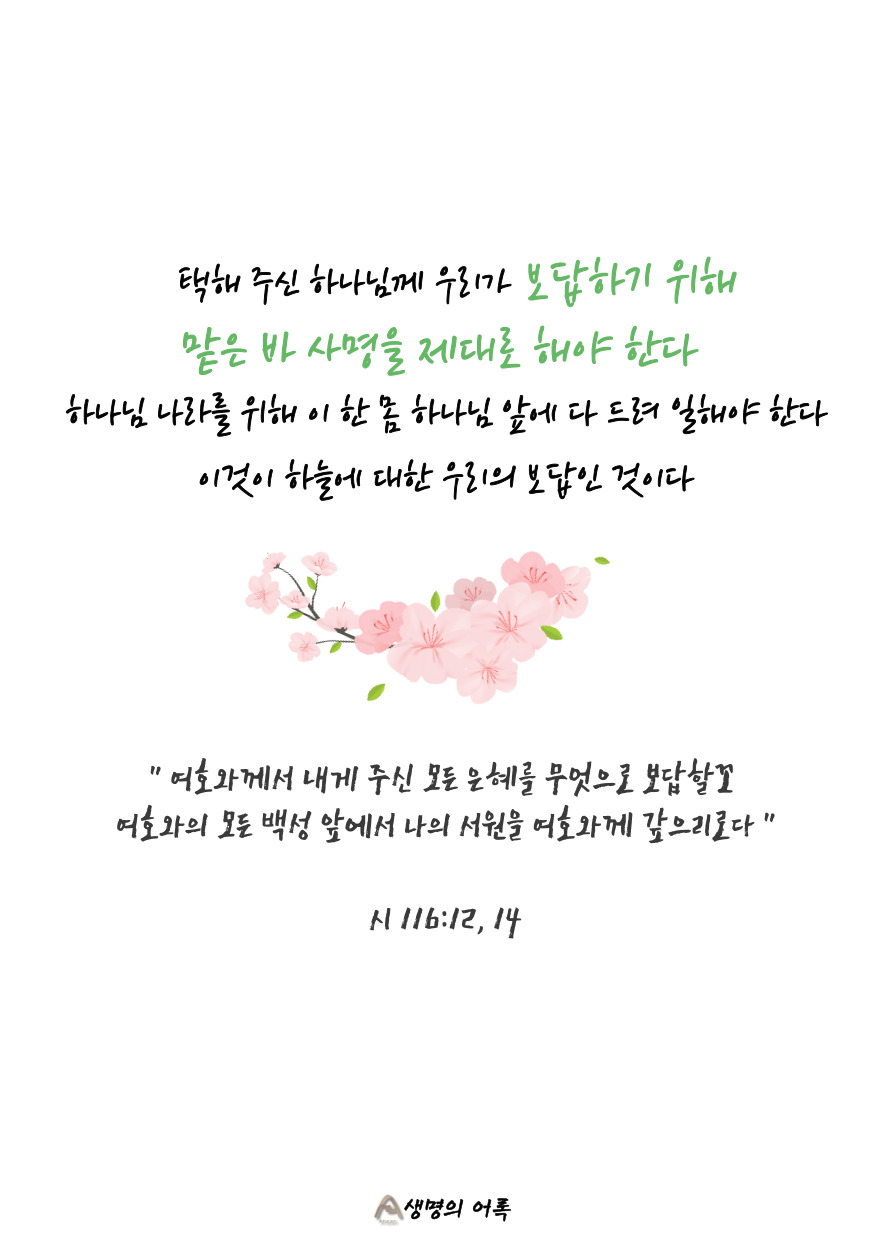 택해 주신 하나님께 우리가 보답하기 위해
맡은 바 사명을 제대로 해야 한다
하나님 나라를 위해 이 한 몸 하나님 앞에 다 드려 일해야 한다
이것이 하늘에 대한 우리의 보답인 것이다
" 여호와께서 내게 주신 모든 은혜를 무엇으로 보답할꼬
여호와의 모든 백성 앞에서 나의 서원을 여호와께 갚으리로다 "
시 116:12, 14
생명의 어록